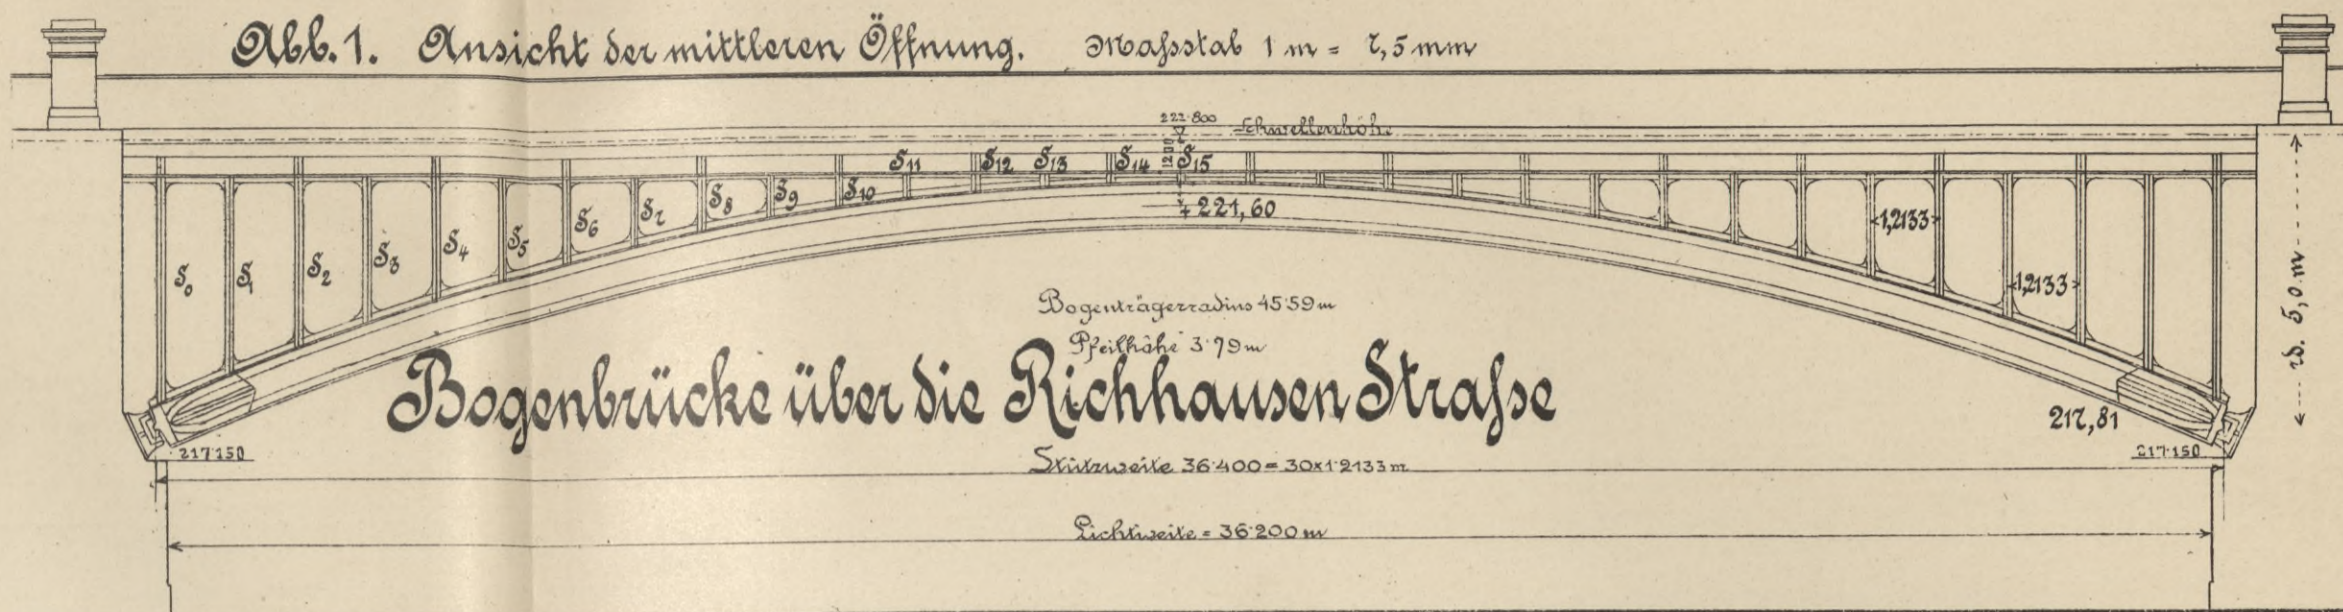 Abb. 1. Ansicht der mittleren Öffnung. Maſsstab 1 m = 7,5 mm
222·800 Schwellenhöhe
1200
S₀ S₁ S₂ S₃ S₄ S₅ S₆ S₇ S₈ S₉ S₁₀ S₁₁ S₁₂ S₁₃ S₁₄ S₁₅
+ 221,60
1,2133
1,2133
rd. 5,0 m
Bogenträgerradius 45·59 m
Pfeilhöhe 3·79 m
Bogenbrücke über die Richhausen Straſse
217,81
217·150
217·150
Stützweite 36·400 = 30x1·2133 m
Lichtweite = 36·200 m